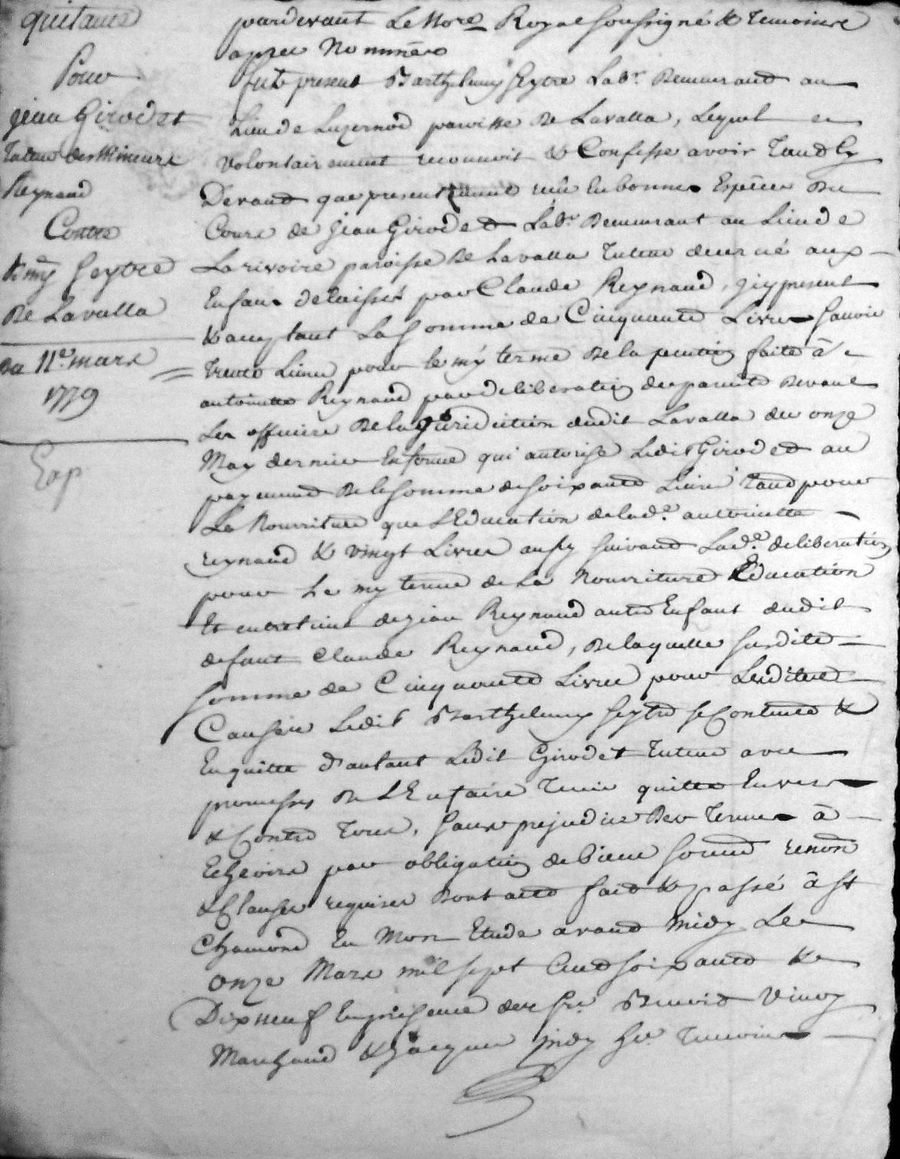 quitance
Pour
jean Girodet
Tuteur des Mineurs
Reynaud
Contre
Seytre
De Lavalla
du 11e. mars
1779
Exp
pardevant Le Nore. Royal soussigné & Temoins
apres Nommés
fut present Barthelemy Seytre Labr. Demeurand au
Lieu de Luzernod paroisse De Lavalla, Lequel
volontairement reconnoit & Confesse avoir Tand Cy
Devand que presentement reçu En bonnes Especes Du
Cours de jean Girodet Labr. Demeurant au Lieu de
Larivoire paroisse De Lavalla Tuteur decerné aux
Enfans delaissés par Claude Reynaud, jcy present
& acceptant La Somme de Cinquante Livres Savoir
Trente Livres pour le my terme De la pention faite à
antoinette Reynaud par deliberation des parents Devant
Les officiers De la juridiction dudit Lavalla du onze
May dernier En forme qui autorise Ledit Girodet au
payement De la Somme de soixante Livres Tand pour
La Nourriture que L'Education de lade. antoinette
reynaud & vingt Livres aussy suivand Lade. deliberation
pour Le my terme de La Nourriture Education
Et entretiens de jean Reynaud autre Enfant dudit
defunt Claude Reynaud, De laquelle susdite
Somme de Cinquante Livres pour Lesdites
Causes Ledit Barthelemy Seytre se Contente &
En quitte d'autant Ledit Girodet Tuteur avec
promesses De L'En faire Tenir quitte Envers
& Contre Tous, Sans prejudice Des Termes à
Echeoirs par obligation de biens Soumis renon
& Clauses requises Dont acte fait & passé à St
Chamond En Mon Etude avand midy Le
onze Mars mil sept Cend soixante &
Dix neuf En presence de sr. Benoit
Marchand & jacques Temoins